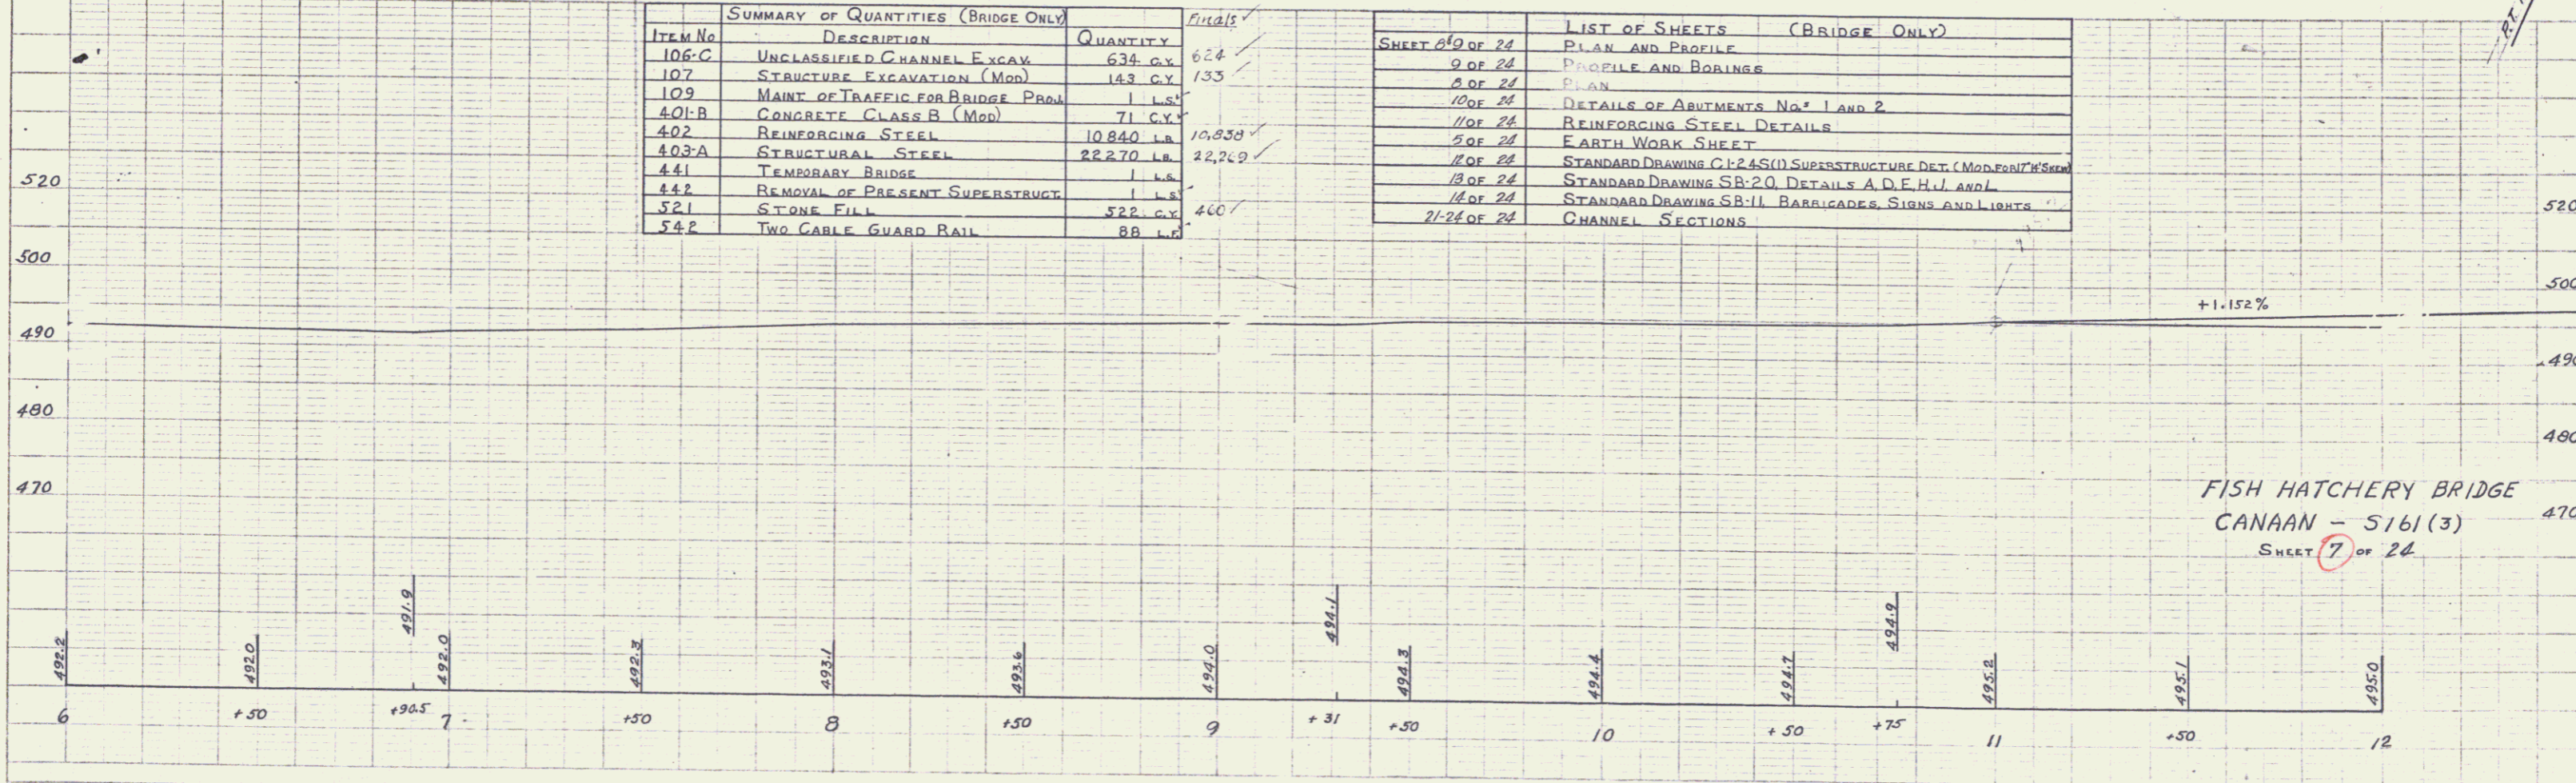 SUMMARY OF QUANTITIES (BRIDGE ONLY) Finals ✓
ITEM NO DESCRIPTION QUANTITY
106-C UNCLASSIFIED CHANNEL EXCAV. 634 C.Y. 624 ✓
107 STRUCTURE EXCAVATION (MOD) 143 C.Y. 133 ✓
109 MAINT. OF TRAFFIC FOR BRIDGE PROJ. 1 L.S. ✓
401-B CONCRETE CLASS B (MOD) 71 C.Y. ✓
402 REINFORCING STEEL 10840 LB. 10,838 ✓
403-A STRUCTURAL STEEL 22270 LB. 22,269 ✓
441 TEMPORARY BRIDGE 1 L.S.
442 REMOVAL OF PRESENT SUPERSTRUCT. 1 L.S. ✓
521 STONE FILL 522 C.Y. 460 ✓
542 TWO CABLE GUARD RAIL 88 L.F. ✓
LIST OF SHEETS (BRIDGE ONLY)
SHEET 8&9 OF 24 PLAN AND PROFILE
9 OF 24 PROFILE AND BORINGS
8 OF 24 PLAN
10 OF 24 DETAILS OF ABUTMENTS NO.S 1 AND 2
11 OF 24 REINFORCING STEEL DETAILS
5 OF 24 EARTH WORK SHEET
12 OF 24 STANDARD DRAWING C1-24S(1) SUPERSTRUCTURE DET. (MOD. FOR 17° 14' SKEW)
13 OF 24 STANDARD DRAWING SB-20, DETAILS A, D, E, H, J, AND L
14 OF 24 STANDARD DRAWING SB-11, BARRICADES, SIGNS AND LIGHTS
21-24 OF 24 CHANNEL SECTIONS
P.T.
520 520
500 500
+1.152%
490 490
480 480
470 470
FISH HATCHERY BRIDGE
CANAAN - S161(3)
SHEET 7 OF 24
492.2 492.0 491.9 492.0 492.3 493.1 493.6 494.0 494.1 494.3 494.4 494.7 494.9 495.2 495.1 495.0
6 +50 +90.5 7 +50 8 +50 9 +31 +50 10 +50 +75 11 +50 12